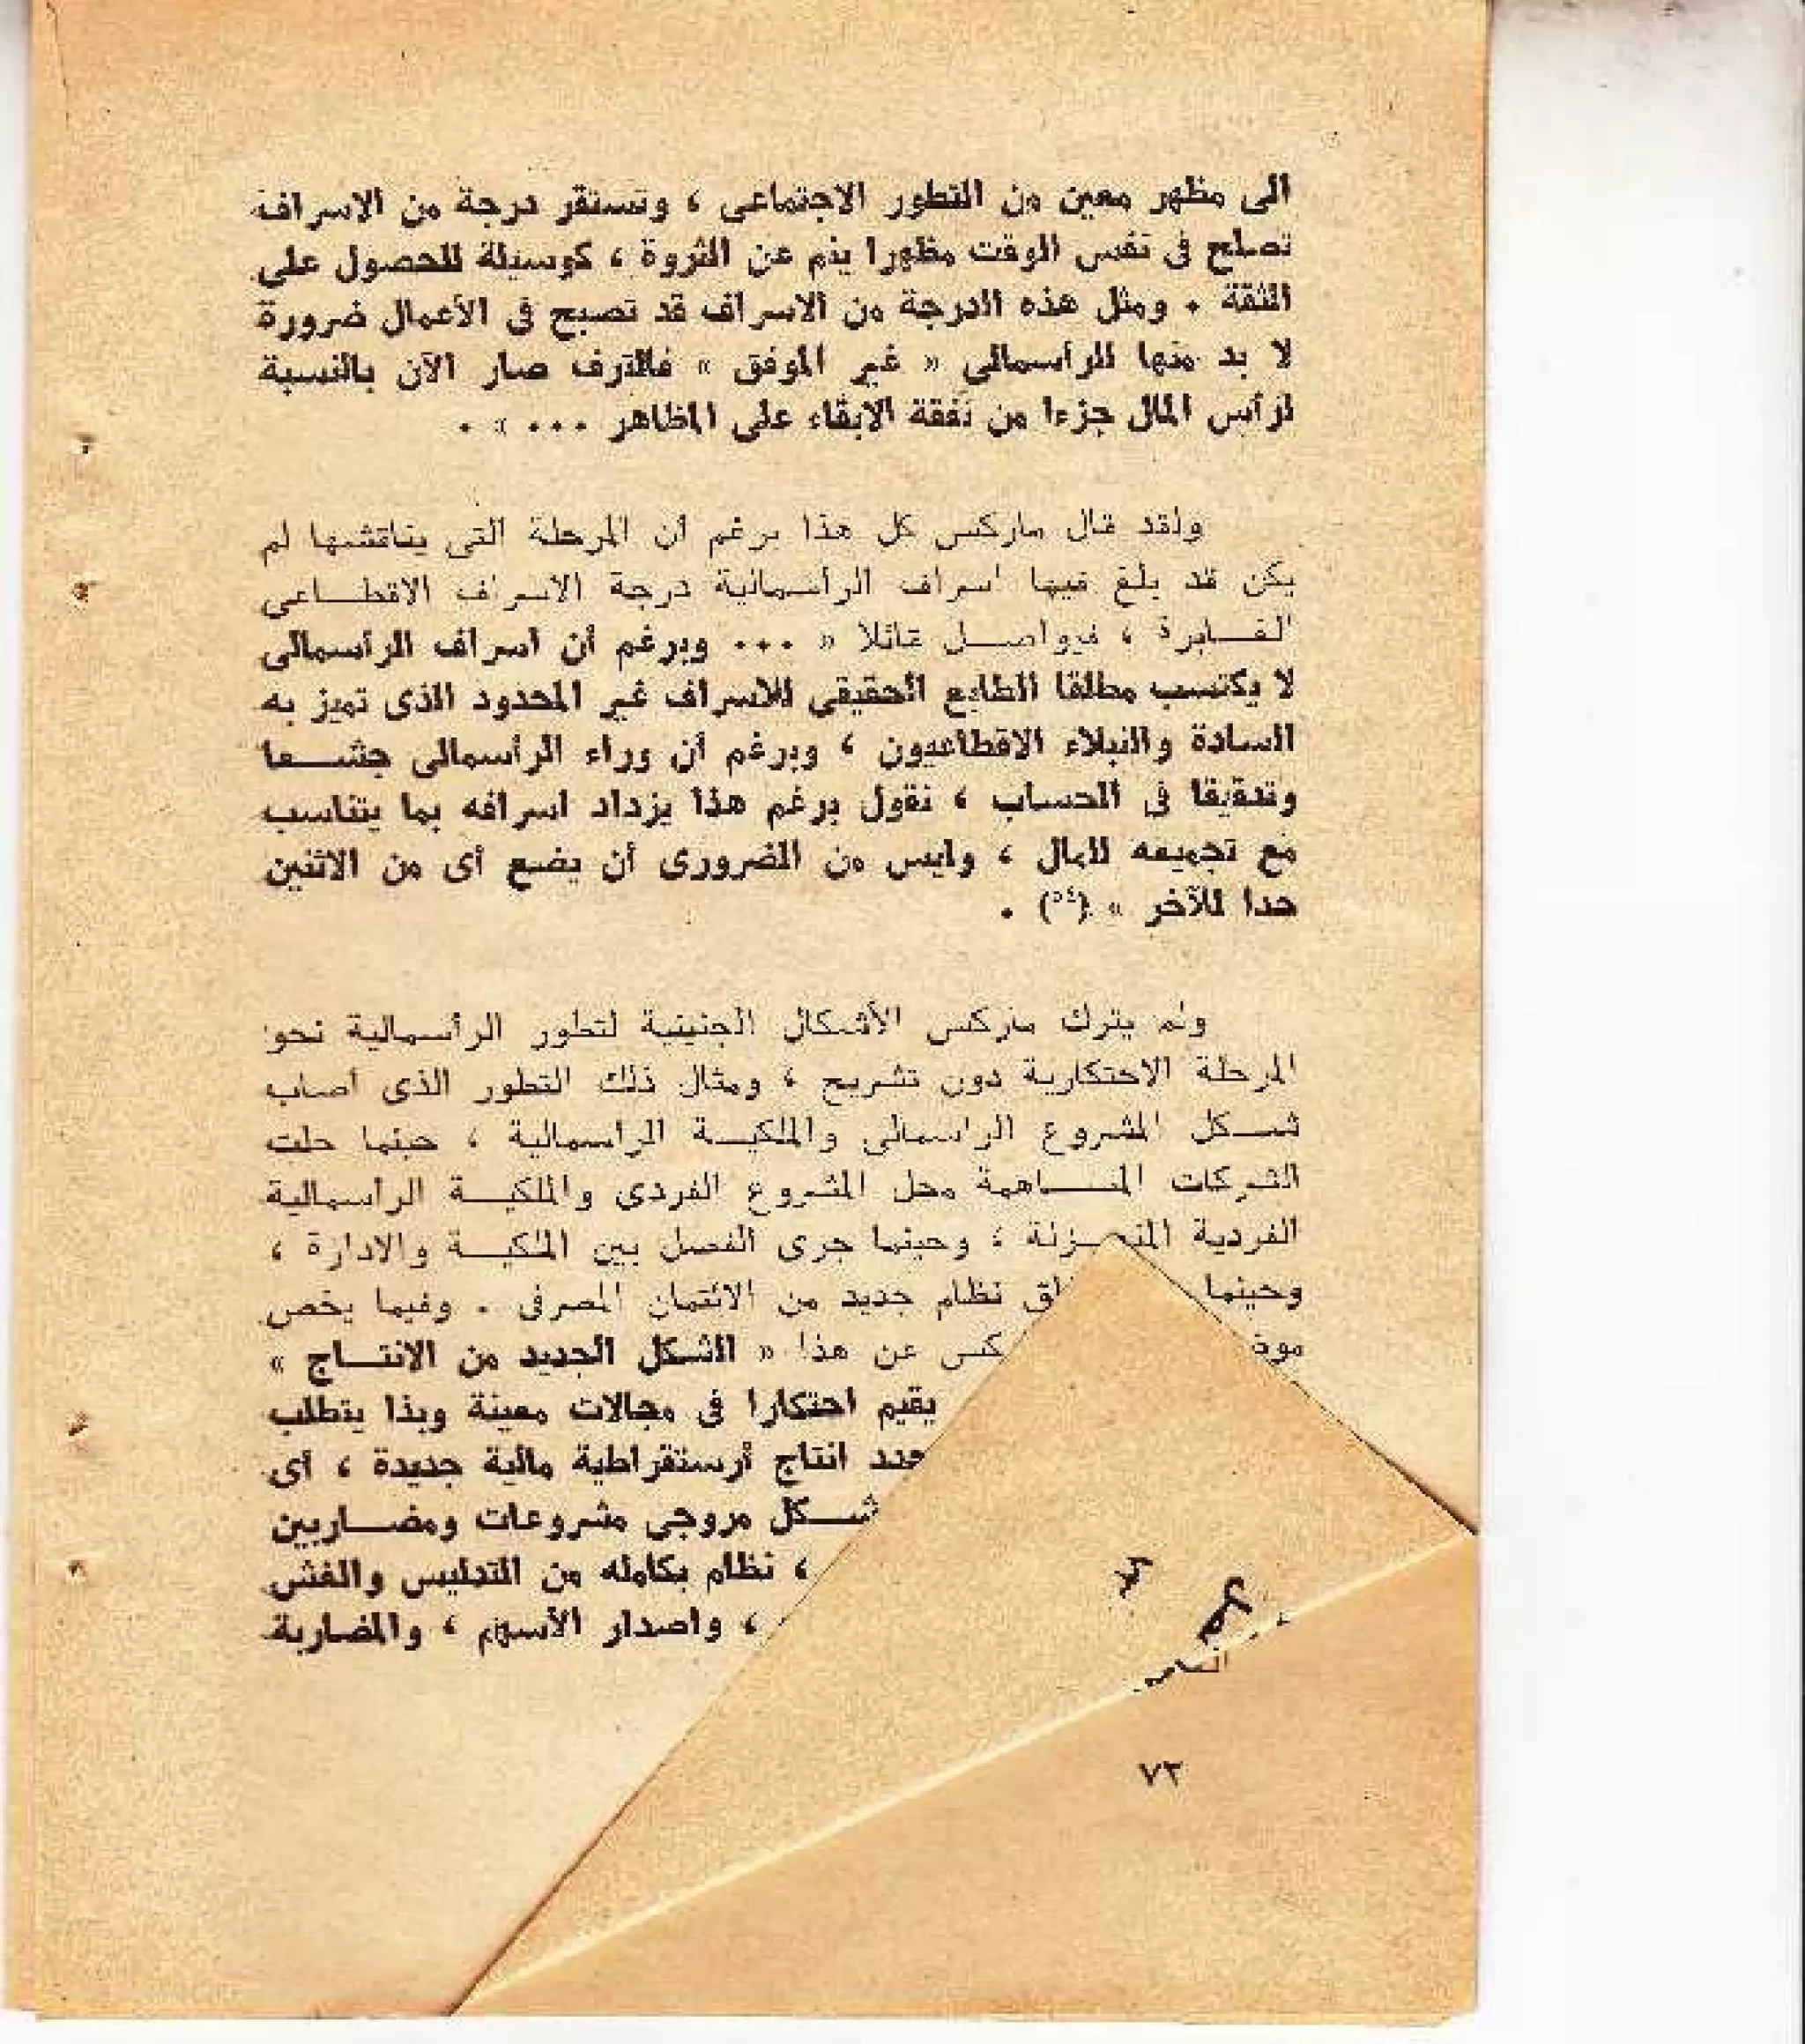 الى مظهر معين من التطور الاجتماعى ، وتستقر درجة من الاسراف
تصلح فى نفس الوقت مظهرا ينم عن الثروة ، كوسيلة للحصول على
الثقة . ومثل هذه الدرجة من الاسراف قد تصبح فى الأعمال ضرورة
لا بد منها للرأسمالى « غير الموفق » فالترف صار الآن بالنسبة
لرأس المال جزءا من نفقة الابقاء على المظاهر ... » .
ولقد قال ماركس كل هذا برغم أن المرحلة التى يناقشها لم
يكن قد بلغ فيها اسراف الرأسمالية درجة الاسراف الاقطاعى
الغابرة ، فيواصل قائلا « ... وبرغم أن اسراف الرأسمالى
لا يكتسب مطلقا الطابع الحقيقى للاسراف غير المحدود الذى تميز به
السادة والنبلاء الاقطاعيون ، وبرغم أن وراء الرأسمالى جشعا
وتدقيقا فى الحساب ، نقول برغم هذا يزداد اسرافه بما يتناسب
مع تجميعه للمال ، وليس من الضرورى أن يضع أى من الاثنين
حدا للآخر » (٥٤) .
ولم يترك ماركس الأشكال الجنينية لتطور الرأسمالية نحو
المرحلة الاحتكارية دون تشريح ، ومثال ذلك التطور الذى أصاب
شكل المشروع الرأسمالى والملكية الرأسمالية ، حينما حلت
الشركات المساهمة محل المشروع الفردى والملكية الرأسمالية
الفردية المنعزلة ، وحينما جرى الفصل بين الملكية والادارة ،
وحينما نظام جديد من الائتمان المصرفى . وفيما يخص
كس عن هذا « الشكل الجديد من الانتاج »
يقيم احتكارا فى مجالات معينة وبذا يتطلب
انتاج أرستقراطية مالية جديدة ، أى
شكل مروجى مشروعات ومضاربين
، نظام بكامله من التدليس والغش
، واصدار الأسهم ، والمضاربة
٧٣